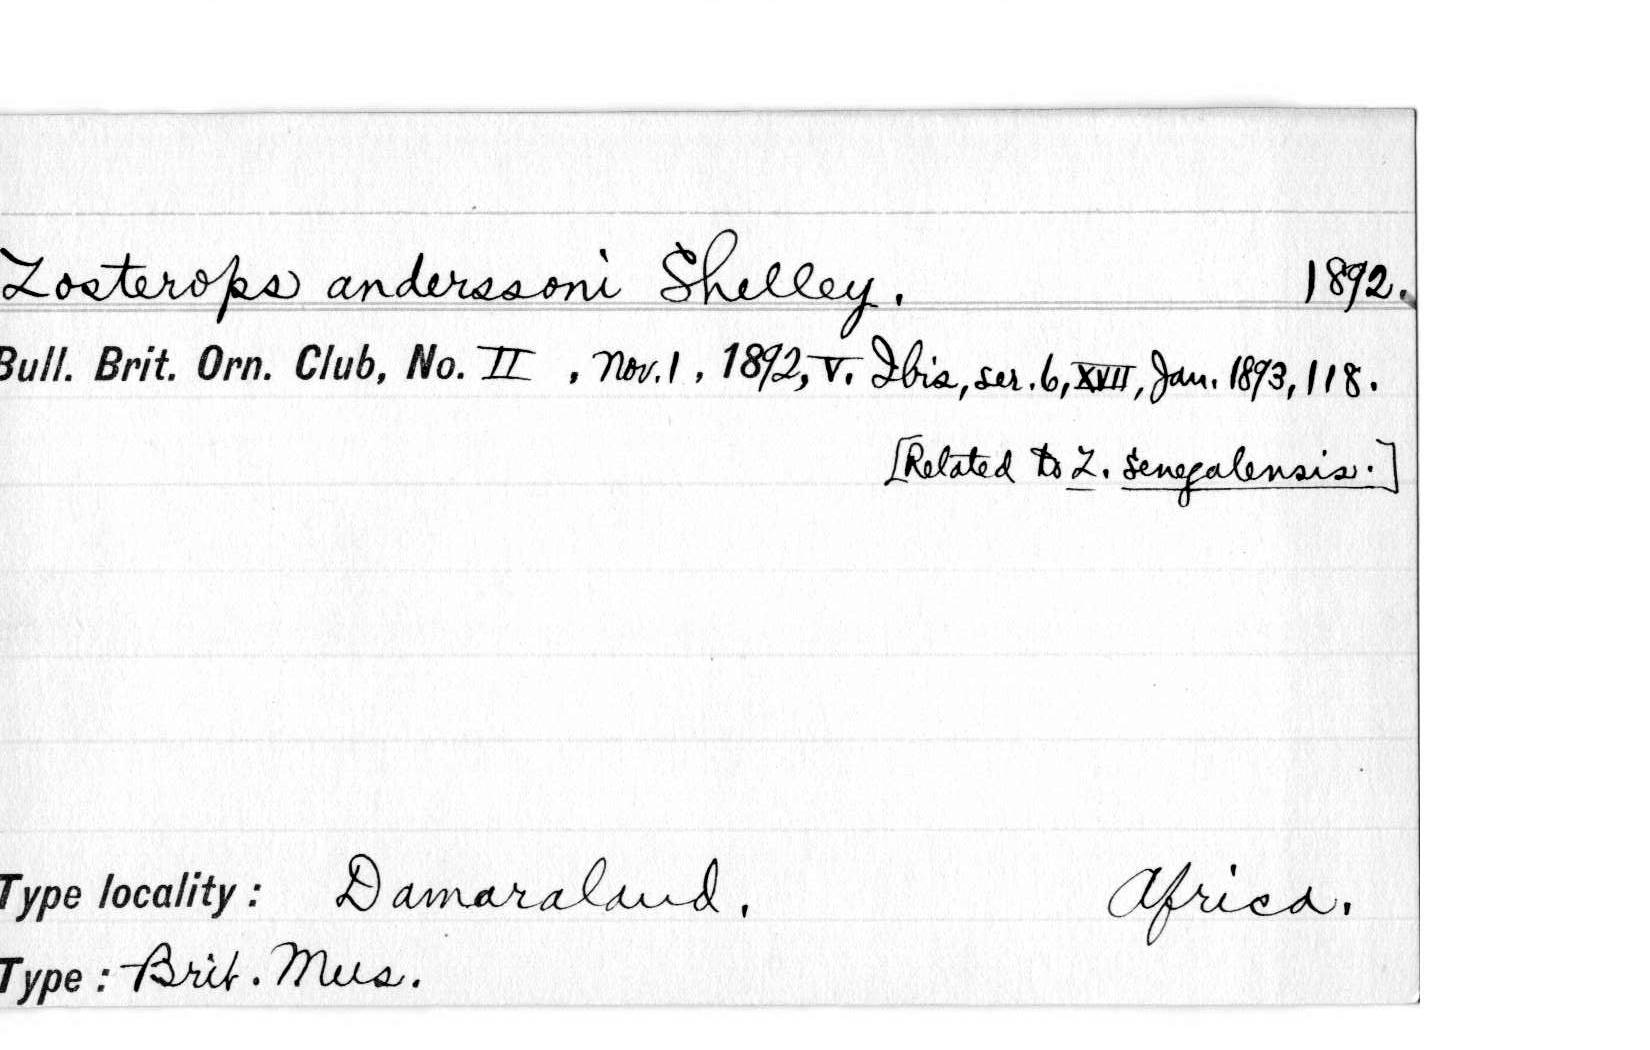 Zosterops anderssoni Shelley. 1892.
Bull. Brit. Orn. Club, No. II , Nov. 1 , 1892, V. Ibis, ser. 6, XVII, Jan. 1893, 118.
[Related to Z. senegalensis.]
Type locality : Damaraland. Africa.
Type : Brit. Mus.